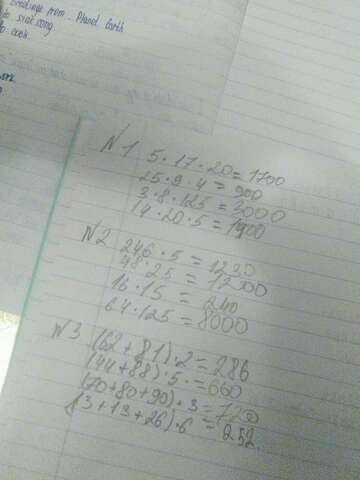 breakings from Planet Earth
№1 5·17·20=1700
25·9·4=900
3·8·125=3000
14·20·5=1400
№2 246·5=1230
48·25=1200
16·15=240
64·125=8000
№3 (62+81)·2=286
(44+88)·5=660
(70+80+90)·3=720
(3+13+26)·6=252